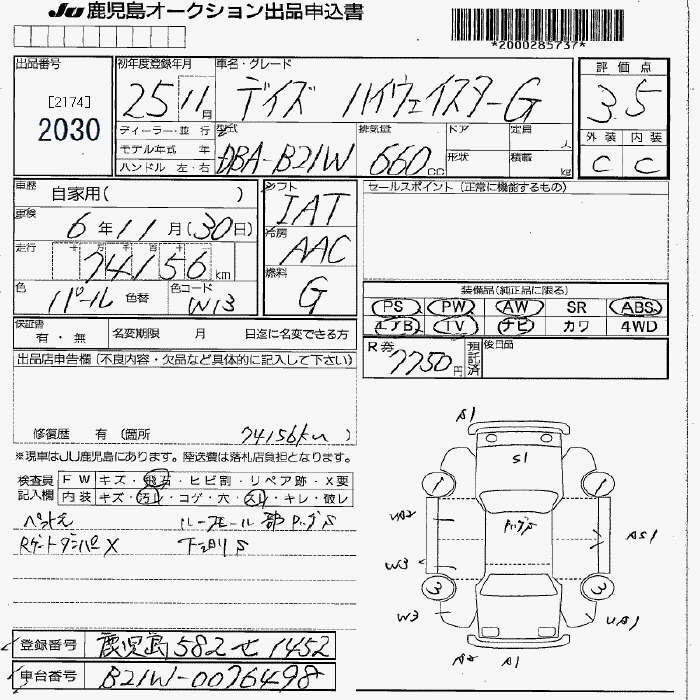 JU 鹿児島オークション出品申込書
*2000285737*
出品番号
[2174]
2030
初年度登録年月
25 11月
車名・グレード
デイズ ハイウェイスターG
評価点
3.5
外装 内装
C C
ディーラー・並 行
モデル年式 年
ハンドル 左・右
型式
DBA-B21W
排気量
660cc
ドア
形状
定員
人
積載
kg
車歴
自家用( )
車検
6年11月(30日)
走行
十 万 千 百 十 一
74156km
色
パール
色替
色コード
W13
シフト
IAT
冷房
AAC
燃料
G
セールスポイント(正常に機能するもの)
装備品(純正品に限る)
PS PW AW SR ABS
エアB TV ナビ カワ 4WD
保証書
有・無
名変期限 月 日迄に名変できる方
R券
7750円
預託済
後日品
出品店申告欄(不良内容・欠品など具体的に記入して下さい)
修復歴 有 (箇所 74156km)
※現車はJU鹿児島にあります。陸送費は落札店負担となります。
検査員
記入欄
FW キズ・飛石・ヒビ割・リペア跡・X要
内装 キズ・汚れ・コゲ・穴・スレ・キレ・破レ
ルーフモール部
RゲートダンパーX
下廻りS
A1
S1
1 1
UA2
AS1
W3
3 3
W3
UA1
A2 A1
登録番号
鹿児島 582 せ 1452
車台番号
B21W-0076498